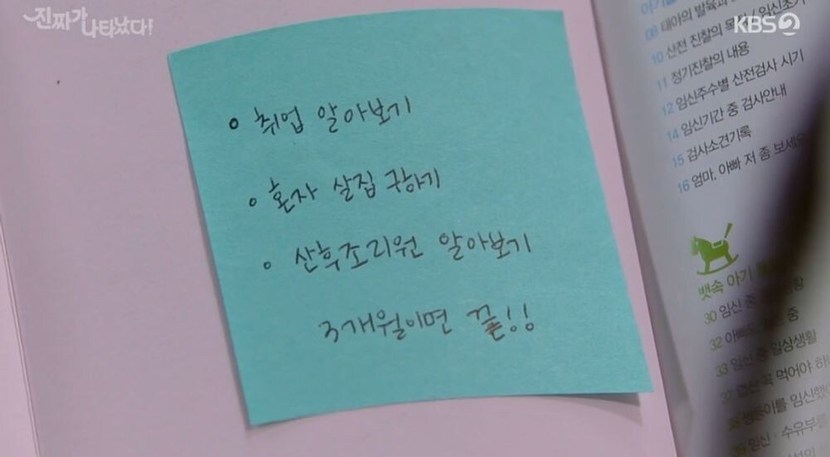 진짜가
나타났다!
KBS2
• 취업 알아보기
• 혼자 살집 구하기
• 산후조리원 알아보기
3개월이면 끝!!
09 태아의 발육과
10 산전 진찰의 / 임신초기
11 정기진찰의 내용
12 임신주수별 산전검사 시기
14 임신기간 중 검사안내
15 검사소견기록
16 엄마, 아빠 저 좀 보세요
뱃속 아기
30 임신 중
32 아빠 중
33 임신 중 일상생활
먹어야
임신했
임신·수유부를